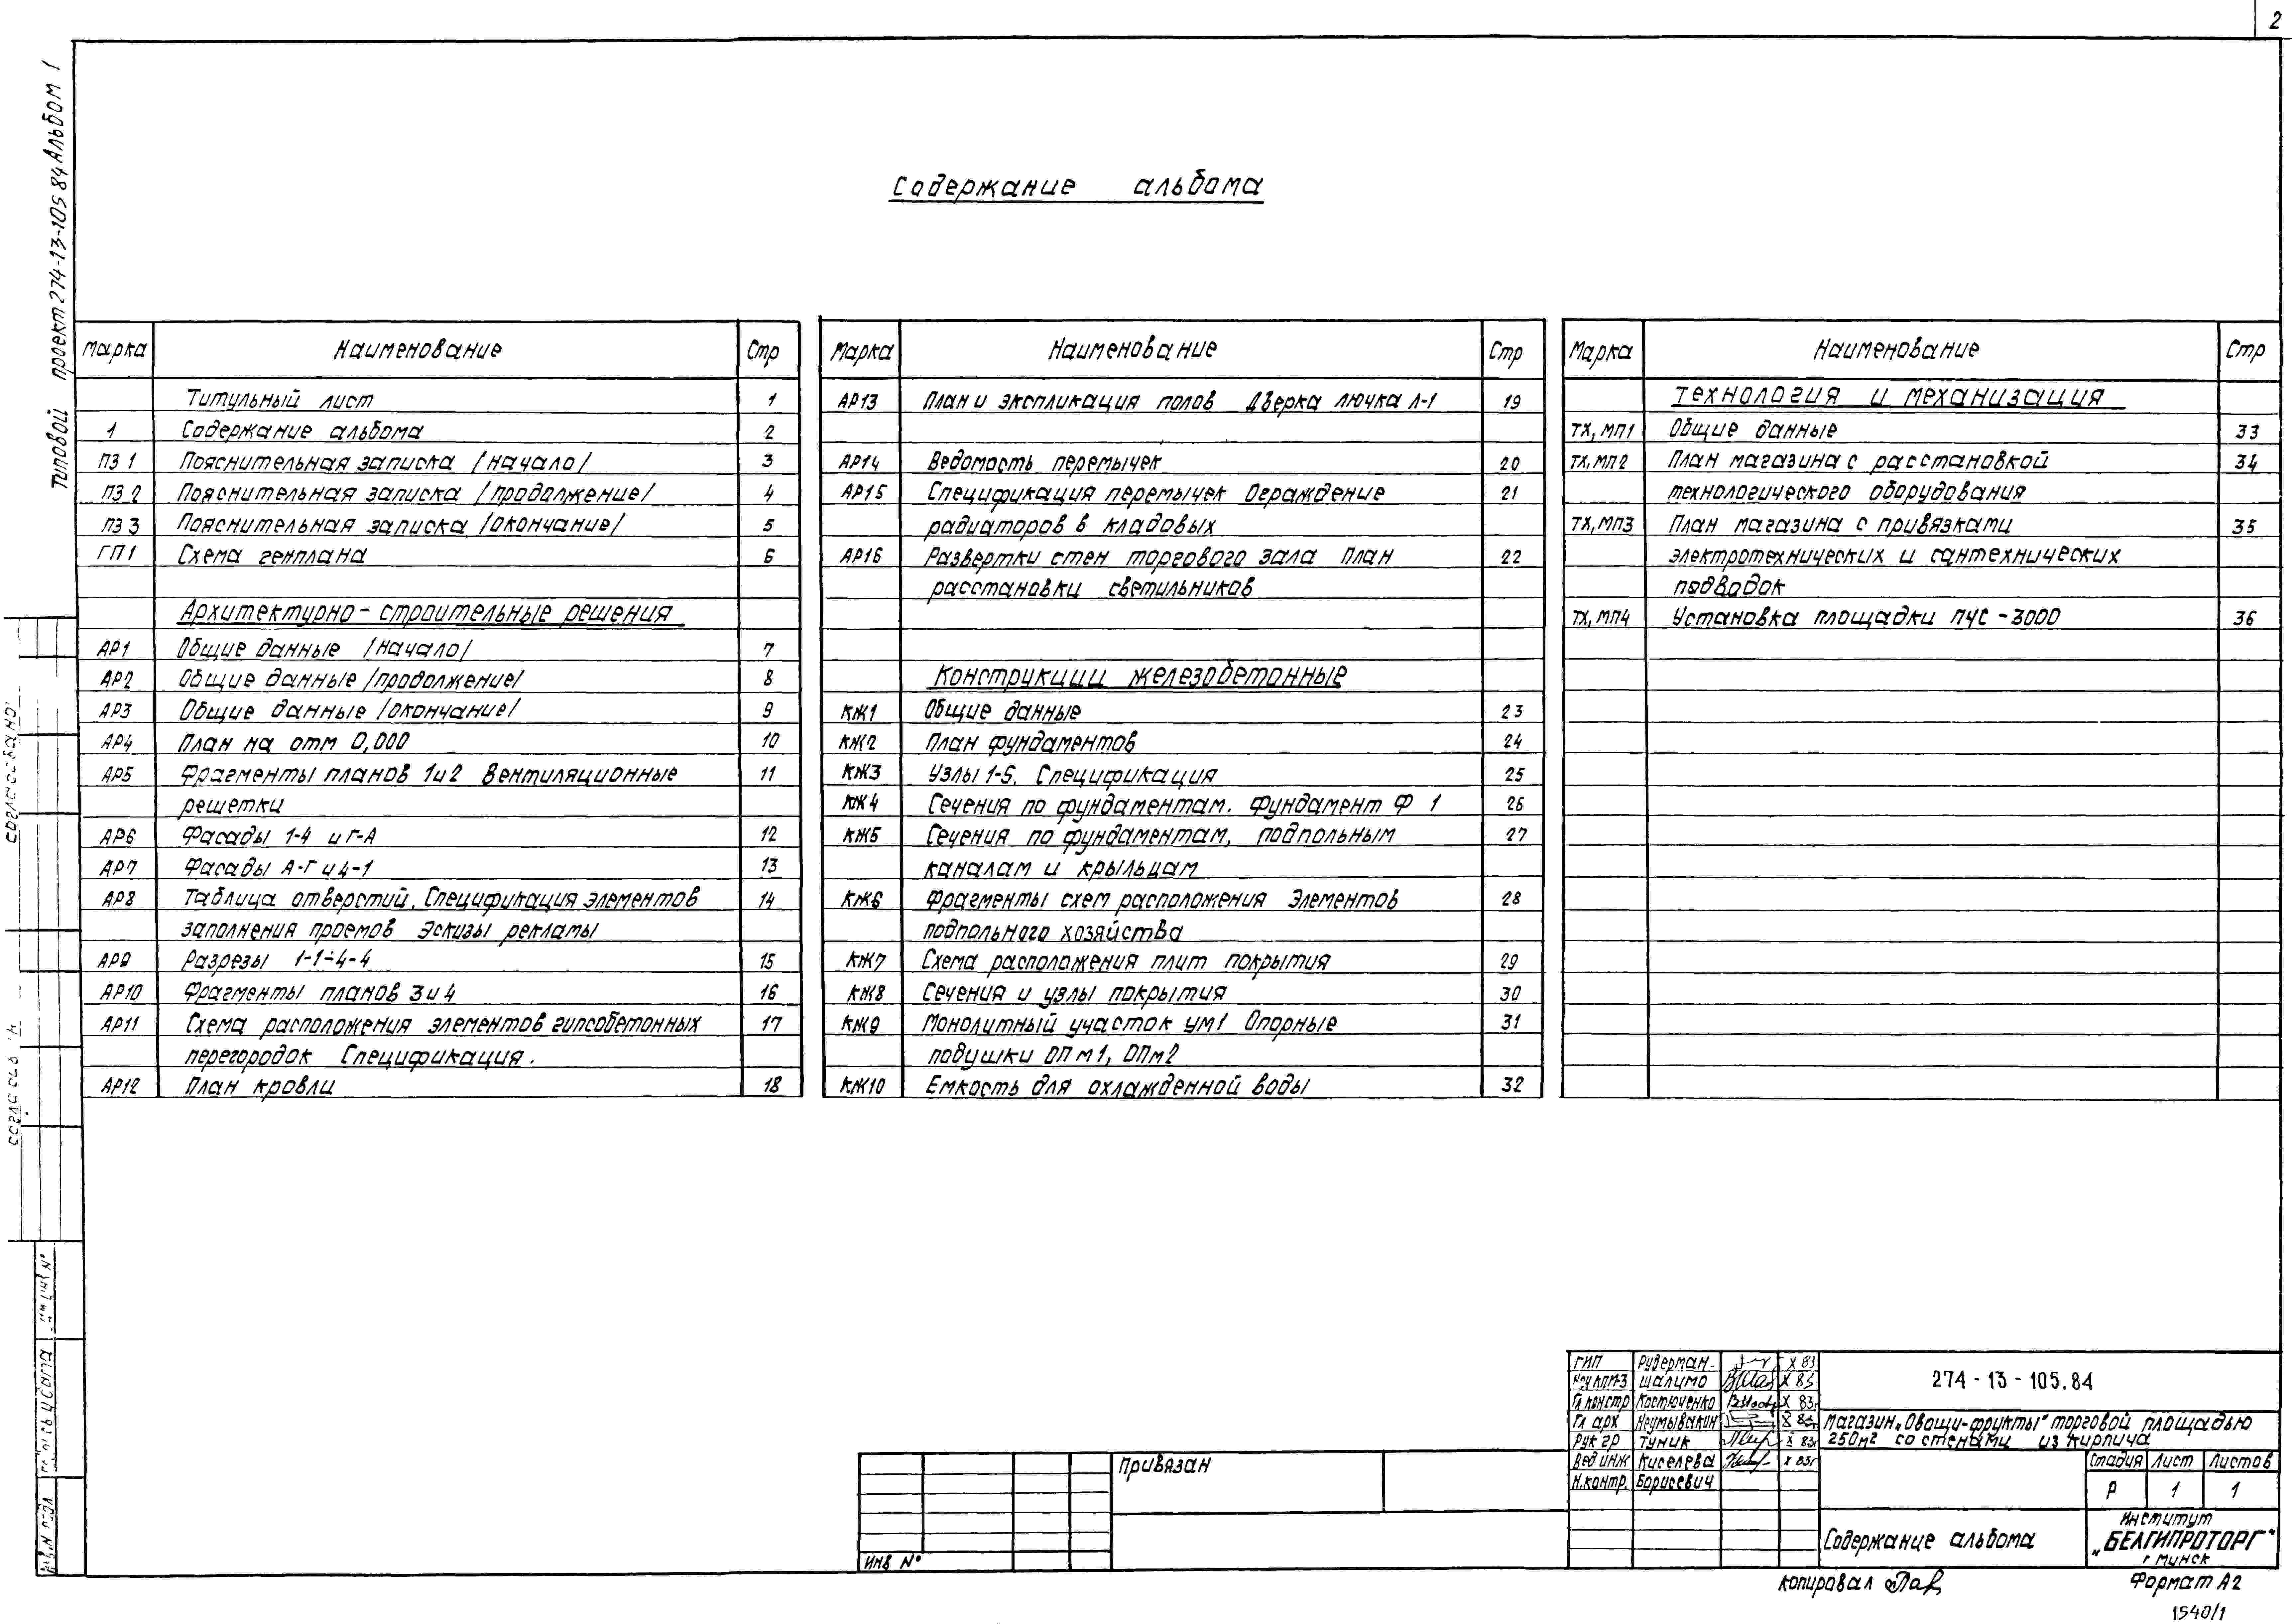 2
Типовой проект 274-13-105 84 Альбом 1
Содержание альбома
Марка Наименование Стр
Титульный лист 1
1 Содержание альбома 2
ПЗ 1 Пояснительная записка /начало/ 3
ПЗ 2 Пояснительная записка /продолжение/ 4
ПЗ 3 Пояснительная записка /окончание/ 5
ГП1 Схема генплана 6
Архитектурно-строительные решения
АР1 Общие данные /начало/ 7
АР2 Общие данные /продолжение/ 8
АР3 Общие данные /окончание/ 9
АР4 План на отм 0,000 10
АР5 Фрагменты планов 1и2 Вентиляционные 11
решетки
АР6 Фасады 1-4 и Г-А 12
АР7 Фасады А-Г и 4-1 13
АР8 Таблица отверстий. Спецификация элементов 14
заполнения проемов Эскизы рекламы
АР9 Разрезы 1-1÷4-4 15
АР10 Фрагменты планов 3 и 4 16
АР11 Схема расположения элементов гипсобетонных 17
перегородок Спецификация.
АР12 План кровли 18
Марка Наименование Стр
АР13 План и экспликация полов Дверка лючка Л-1 19
АР14 Ведомость перемычек 20
АР15 Спецификация перемычек Ограждение 21
радиаторов в кладовых
АР16 Развертки стен торгового зала План 22
расстановки светильников
Конструкции железобетонные
КЖ1 Общие данные 23
КЖ2 План фундаментов 24
КЖ3 Узлы 1-5. Спецификация 25
КЖ4 Сечения по фундаментам. Фундамент Ф 1 26
КЖ5 Сечения по фундаментам, подпольным 27
каналам и крыльцам
КЖ6 Фрагменты схем расположения Элементов 28
подпольного хозяйства
КЖ7 Схема расположения плит покрытия 29
КЖ8 Сечения и узлы покрытия 30
КЖ9 Монолитный участок УМ1 Опорные 31
подушки ОПм1, ОПм2
КЖ10 Емкость для охлажденной воды 32
Марка Наименование Стр
Технология и механизация
ТХ, МП1 Общие данные 33
ТХ, МП2 План магазина с расстановкой 34
технологического оборудования
ТХ, МП3 План магазина с привязками 35
электротехнических и сантехнических
подводок
ТХ, МП4 Установка площадки ПЧС-3000 36
согласовано:
ГИП Рудерман X 83
Нач КПМ-3 Шалимо X 83
Гл констр Костюченко X 83г
Гл арх Неумывакин X 83г
Рук гр Туник X 83г
Вед инж Киселева X 83г
Н.контр. Борисевич
274-13-105.84
Магазин „Овощи-фрукты" торговой площадью
250м2 со стенами из кирпича
Стадия Лист Листов
Р 1 1
Содержание альбома
Институт
„БЕЛГИПРОТОРГ"
г Минск
Привязан
Инв N°
Копировал
Формат А2
1540/1